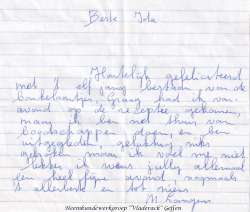 Beste Jola
Hartelijk gefeliciteerd
met 't elf jarig bestaan van de
Graag had ik van-
avond op de receptie gekomen,
maar ik ben net thuis van
boodschappen doen, en ben
uitgegleden, gelukkig niks
gebroken maar ik voel me niet
lekker ik wens jullie allemaal
een heel fijne avond nogmaals
't allerbeste en tot ziens
M.
Heemkundewerkgroep "Vladerack" Geffen